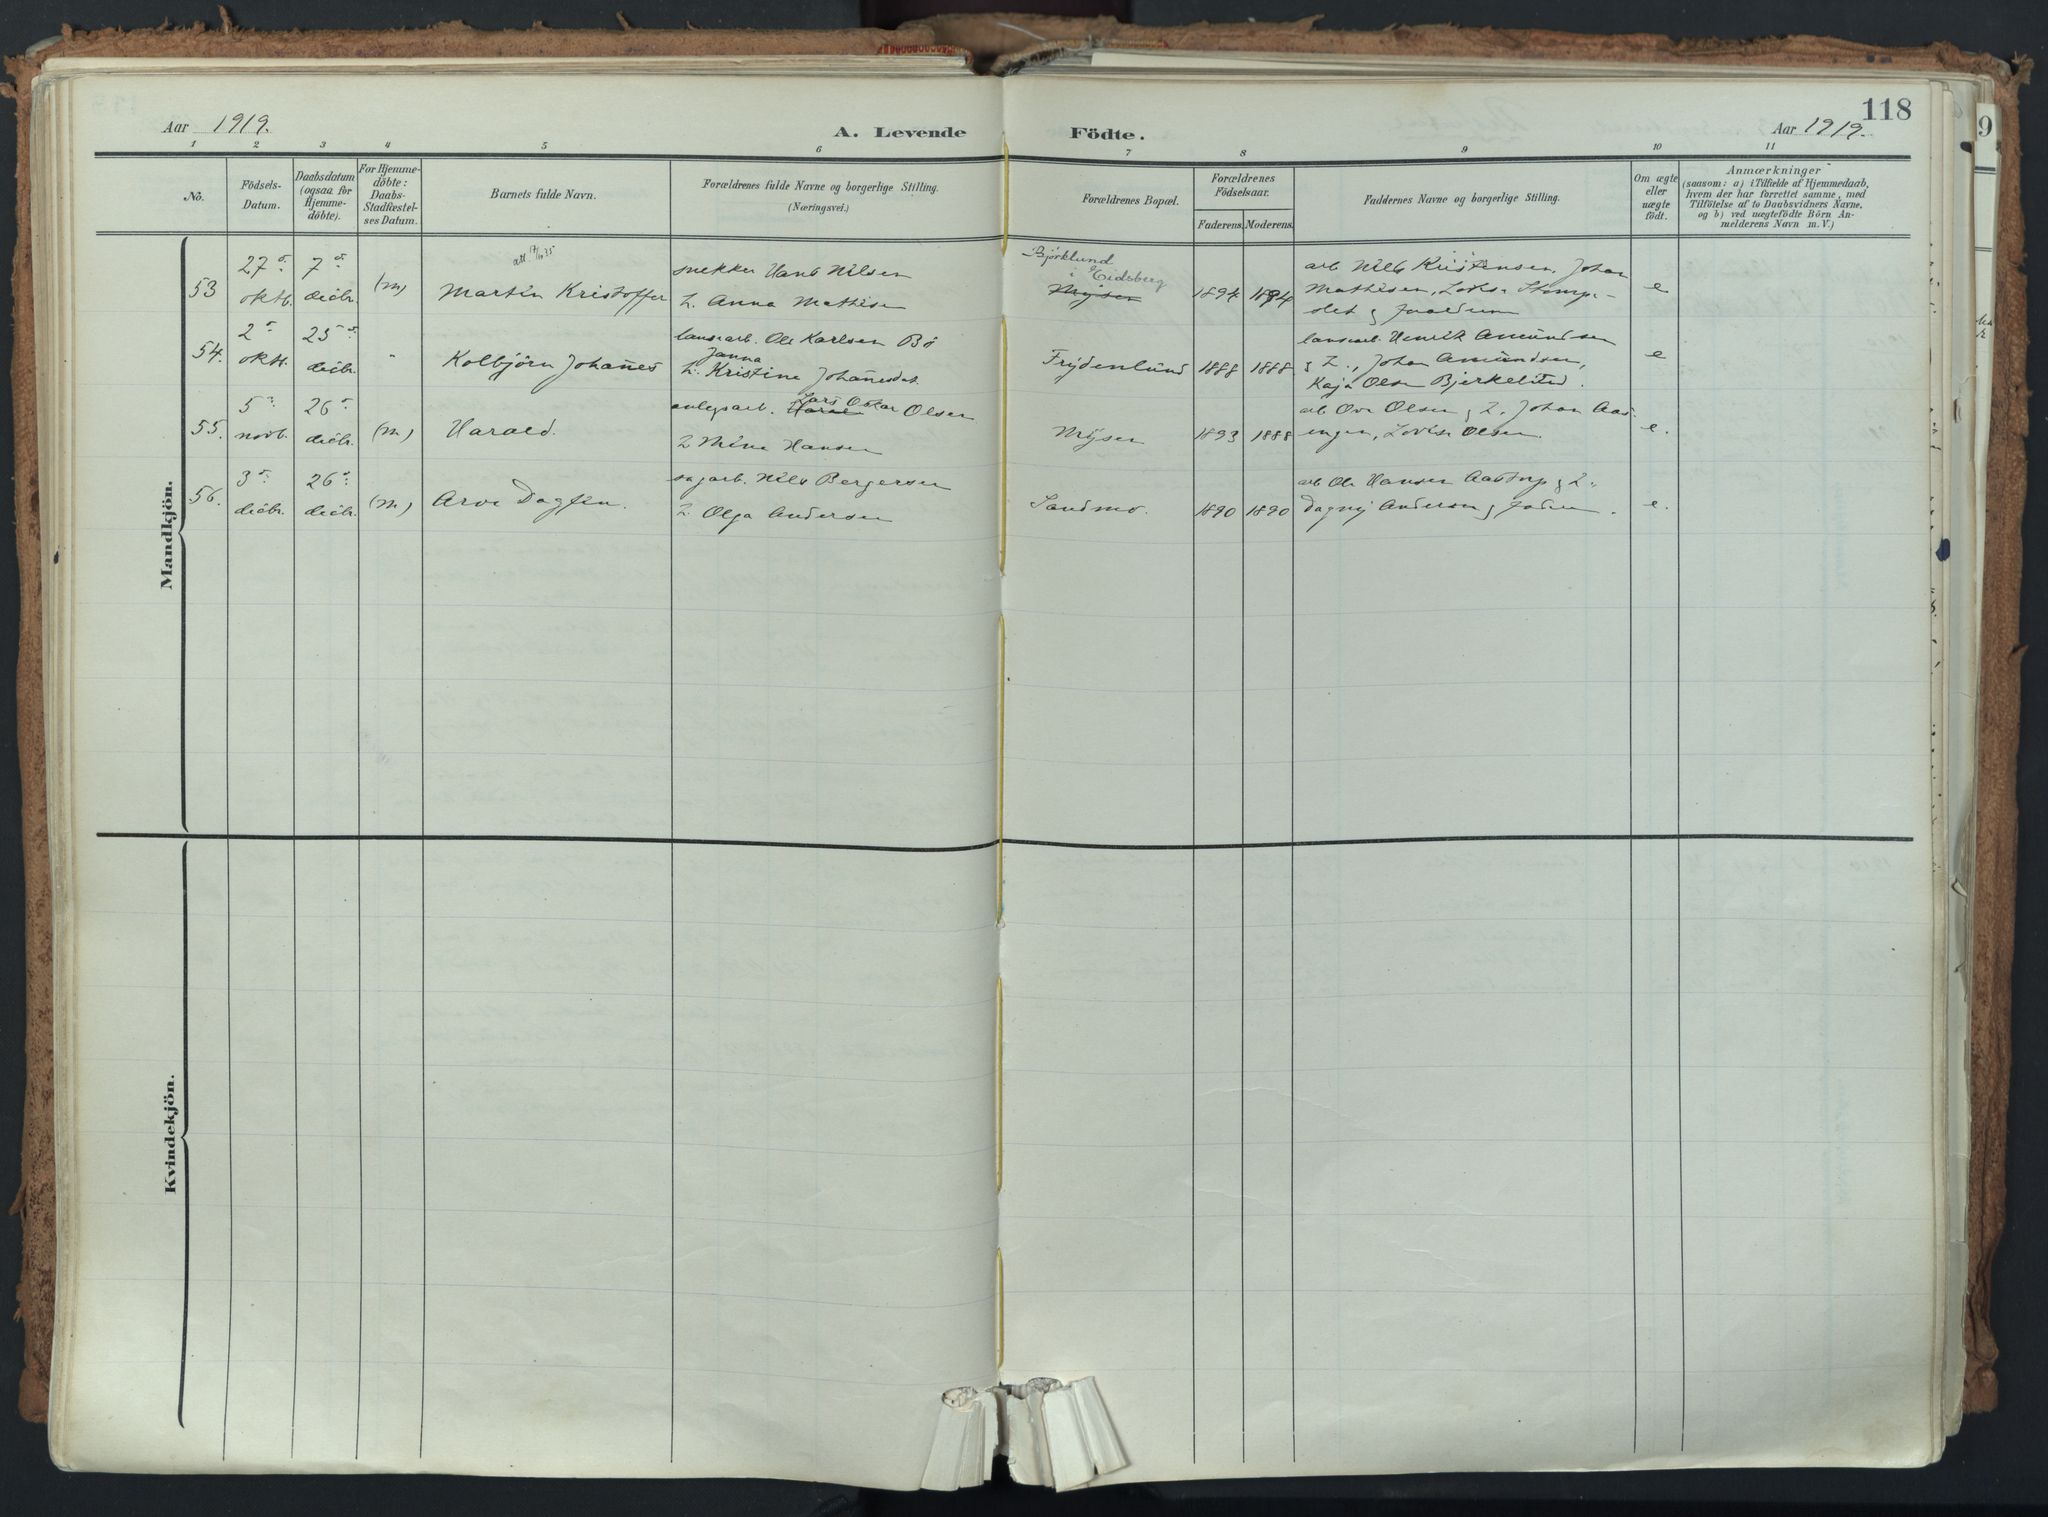 118
Aar 1919.
A. Levende Födte.
Aar 1919.
1 2 3 4 5 6 7 8 9 10 11
No.
Födsels-
Datum.
Daabsdatum
(ogsaa for
Hjemme-
döbte).
For Hjemme-
döbte:
Daabs-
Stadfæstel-
ses Datum.
Barnets fulde Navn.
Forældrenes fulde Navne og borgerlige Stilling.
(Næringsvei.)
Forældrenes Bopæl.
Forældrenes
Födselsaar.
Faderens. Moderens.
Faddernes Navne og borgerlige Stilling.
Om ægte
eller
uægte
födt.
Anmærkninger
(saasom: a) i Tilfælde af Hjemmedaab,
hvem der har forrettet samme, med
Tilföielse af to Daabsvidners Navne,
og b) ved uægtefödte Börn An-
melderens Navn m. V.)
Mandkjön.
53
27
oktb.
7
decbr.
(m)
Martin Kristoffer
snekker Hans Nilsen
h. Anna Mathisen
Björklund
i Eidsberg
Mysen
1894 1894
arb Nils Kristensen, Johan
Mathisen,
slet
e
54.
2
oktb.
25
decbr.
"
Kolbjörn Johannes
Ole Karlsen Bö
Janna
h. Kristine
Frydenlund
1888 1888
Henrik Amundsen
Johan Amundsen,
Kaja Olsen
e
55.
5
novb.
26
decbr.
(m)
Harald.
anlegsarb. Lars Oskar Olsen
h. Mina Hansen
Mysen
1893 1888
arb Olsen Johan Aas-
engen, Olsen.
e.
56.
3
decbr.
26
decbr.
(m)
Arve Dagfin.
sagarb. Nils Bergersen
h. Olga Andersen
Sandmo.
1890 1890
arb Ole Hansen
Dagny Andersen
e.
Kvindekjön.